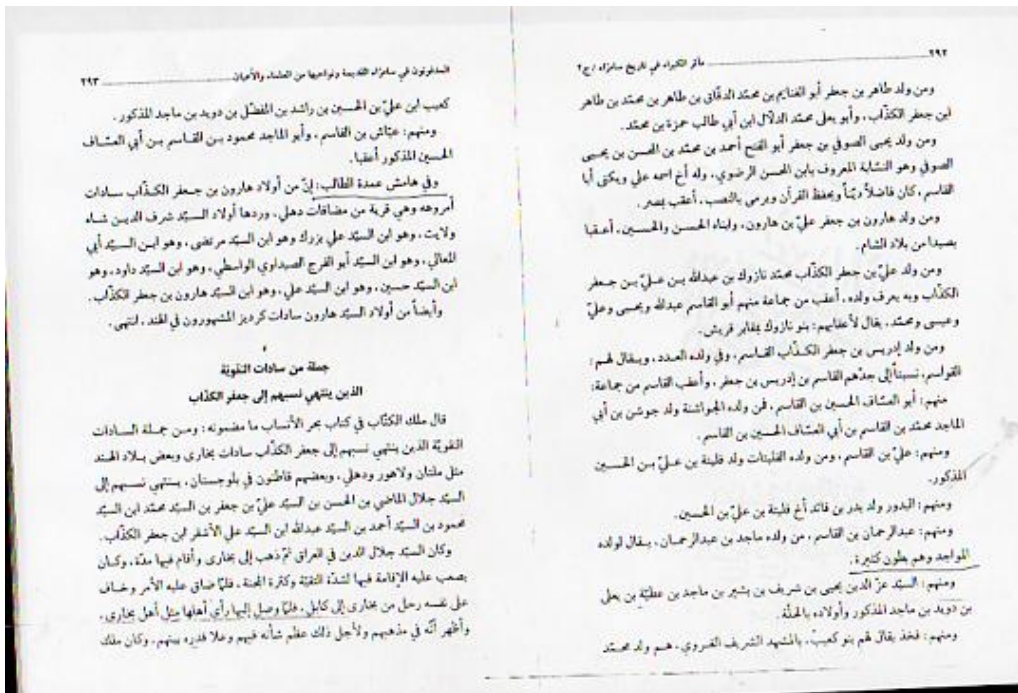 ٢٩٢ ــــــــــــــــ مآثر الكبراء في تاريخ سامرّاء / ج٢
ومن ولد طاهر بن جعفر أبو الغنايم بن محمّد الدقّاق بن طاهر بن محمّد بن طاهر
ابن جعفر الكذّاب، وأبو يعلى محمّد الدلّال ابن أبي طالب حمزة بن محمّد.
ومن ولد يحيى الصوفي بن جعفر أبو الفتح أحمد بن محمّد بن المحسن بن يحيى
الصوفي وهو النسّابة المعروف بابن المحسن الرضوي، وله أخ اسمه علي ويكنى أبا
القاسم، كان فاضلاً ديّناً ويحفظ القرآن ويرمى بالنصب، أعقب بمصر.
ومن ولد هارون بن جعفر عليّ بن هارون، وابناه الحسن والحسين، أعقبا
بصيدا من بلاد الشام.
ومن ولد عليّ بن جعفر الكذّاب محمّد نازوك بن عبدالله بن عليّ بن جعفر
الكذّاب وبه يعرف ولده، أعقب من جماعة منهم أبو القاسم عبدالله ويحيى وعليّ
وعيسى ومحمّد، يقال لأعقابهم: بنو نازوك بمقابر قريش.
ومن ولد إدريس بن جعفر الكذّاب القاسم، وفي ولده العدد، ويقال لهم:
القواسم، نسبتاً إلى جدّهم القاسم بن إدريس بن جعفر، وأعقب القاسم من جماعة:
منهم: أبو العسّاف الحسين بن القاسم، فمن ولده الجواشنة ولد جوشن بن أبي
الماجد محمّد بن القاسم بن أبي العسّاف الحسين بن القاسم.
ومنهم: عليّ بن القاسم، ومن ولده الفليتات ولد فليتة بن عليّ بن الحسين
المذكور.
ومنهم: البدور ولد بدر بن قائد أخ فليتة بن عليّ بن الحسين.
ومنهم: عبدالرحمان بن القاسم، من ولده ماجد بن عبدالرحمان، يقال لولده
المواجد وهم بطون كثيرة.
ومنهم: السيّد عزّ الدين يحيى بن شريف بن بشير بن ماجد بن عطيّة بن يعلى
بن دويد بن ماجد المذكور وأولاده بالحلّة.
ومنهم: فخذ يقال لهم بنو كعيب، بالمشهد الشريف الغروي، هم ولد محمّد
المدفونون في سامرّاء القديمة ونواحيها من العلماء والأعيان ــــــــــــــــ ٢٩٣
كعيب ابن عليّ بن الحسين بن راشد بن المفضّل بن دويد بن ماجد المذكور.
ومنهم: عيّاش بن القاسم، وأبو الماجد محمود بن القاسم بن أبي العسّاف
الحسين المذكور أعقبا.
وفي هامش عمدة الطالب: إنّ من أولاد هارون بن جعفر الكذّاب سادات
أمروهه وهي قرية من مضافات دهلي، وردها أولاد السيّد شرف الدين شاه
ولايت، وهو ابن السيّد علي بزرك وهو ابن السيّد مرتضى، وهو ابن السيّد أبي
المعالي، وهو ابن السيّد أبو الفرج الصيداوي الواسطي، وهو ابن السيّد داود، وهو
ابن السيّد حسين، وهو ابن السيّد علي، وهو ابن السيّد هارون بن جعفر الكذّاب.
وأيضاً من أولاد السيّد هارون سادات كرديز المشهورون في الهند، انتهى.
جملة من سادات النقويّة
الذين ينتهي نسبهم إلى جعفر الكذّاب
قال ملك الكتّاب في كتاب بحر الأنساب ما مضمونه: ومن جملة السادات
النقويّة الذين ينتهي نسبهم إلى جعفر الكذّاب سادات بخارى وبعض بلاد الهند
مثل ملتان ولاهور ودهلي، وبعضهم قاطنون في بلوجستان، ينتهي نسبهم إلى
السيّد جلال الماضي بن الحسن بن السيّد عليّ بن جعفر بن السيّد محمّد ابن السيّد
محمود بن السيّد أحمد بن السيّد عبدالله ابن السيّد علي الأشقر ابن جعفر الكذّاب.
وكان السيّد جلال الدين في العراق ثمّ ذهب إلى بخارى وأقام فيها مدّة، وكان
يصعب عليه الإقامة فيها لشدّة التقيّة وكثرة المحنة، فلمّا ضاق عليه الأمر وخاف
على نفسه رحل من بخارى إلى كابل، فلمّا وصل إليها رأى أهلها مثل أهل بخارى،
وأظهر أنّه في مذهبهم ولأجل ذلك عظم شأنه فيهم وعلا قدره بينهم، وكان ملك